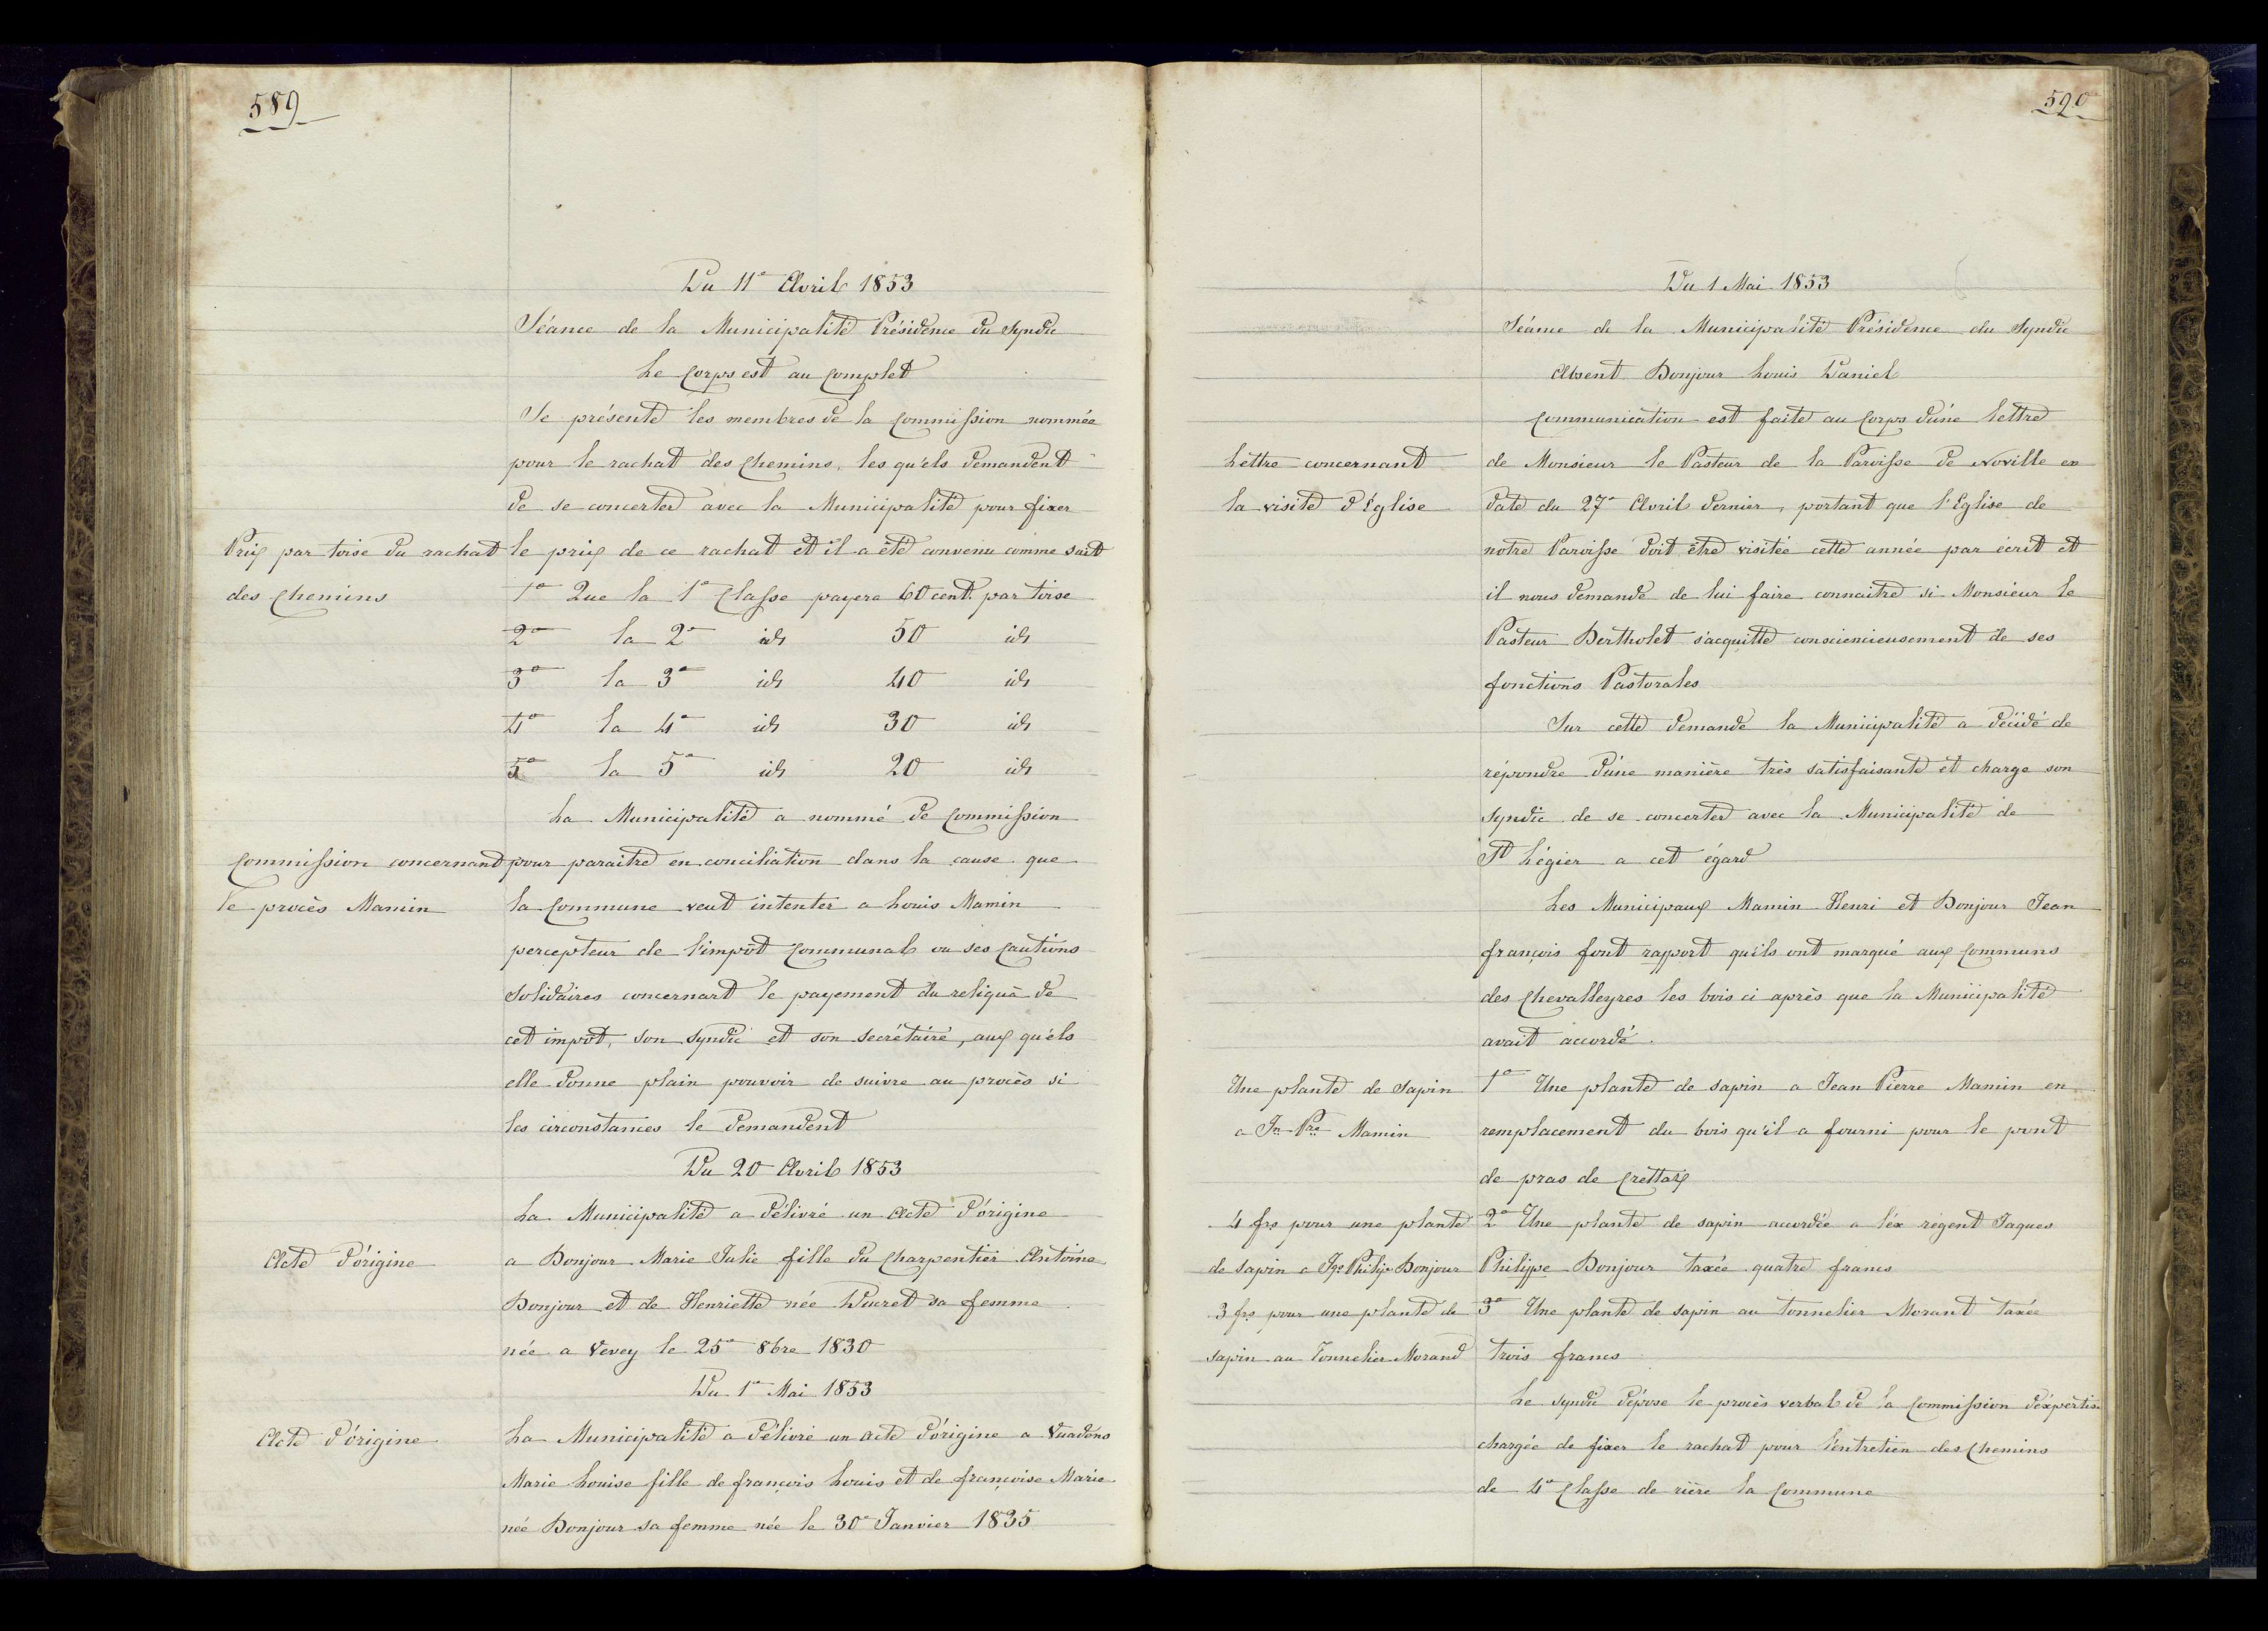 589
Du 11e Avril 1853
Séance de la Municipalité Présidence du Syndic
Le Corps est au Complet
Se présente les membres de la Commission nommée
pour le rachat des Chemins, les qu'els demandent
de se concerter avec la Municipalité pour fixer
Prix par toise du rachat
des Chemins
le prix de ce rachat et il a été convenu comme suit
1o Que la 1e Classe payera 60 cent. par toise
2o la 2e id 50 id
3o la 3e id 40 id
4o la 4e id 30 id
5o la 5e id 20 id
La Municipalité a nommé de Commission
Commission concernant
le procès Mamin
pour paraitre en conciliation dans la cause que
la Commune veut intenter a Louis Mamin
percepteur de l'impôt Communal ou ses Cautions
Solidaires concernant le payement du reliquà de
cet impôt, son Syndic et son secrétaire, aux qu'els
elle donne plain pouvoir de suivre au procès si
les circonstances le demandent
Du 20 Avril 1853
La Municipalité a délivré un Acte d'origine
Acte d'origine
a Bonjour Marie Julie fille du Charpentier Antoine
Bonjour et de Henriette née Ducret sa femme
née a Vevey le 25e 8bre 1830
Du 1e Mai 1853
Acte d'origine
La Municipalité a délivré un acte d'origine a Vuadens
Marie Louise fille de françois Louis et de françoise Marie
née Bonjour sa femme née le 30e Janvier 1835
590
Du 1 Mai 1853
Séance de la Municipalité Présidence du Syndic
Absent Bonjour Louis Daniel
Communication est faite au Corps d'une lettre
Lettre concernant
la visite d'Église
de Monsieur le Pasteur de la Paroisse de Noville en
date du 27e Avril dernier, portant que l'Eglise de
notre Paroisse doit être visitée cette année par écrit et
il nous demande de lui faire connaitre si Monsieur le
Pasteur Bertholet s'acquitte consciencieusement de ses
fonctions Pastorales
Sur cette demande la Municipalité a décidé de
répondre d'une manière très satisfaisante et charge son
Syndic de se concerter avec la Municipalité de
St Légier a cet égard
Les Municipaux Mamin Henri et Bonjour Jean
françois font rapport qu'ils ont marqué aux Communs
des Chevalleyres les bois ci après que la Municipalité
avait accordé.
Une plante de Sapin
a Jn Pre Mamin
1o Une plante de sapin a Jean Pierre Mamin en
remplacement du bois qu'il a fourni pour le pont
de pras de Crettax
4 frs pour une plante
de sapin a Jqs Philipe Bonjour
2o Une plante de sapin accordée a l'éx régent Jaques
Philippe Bonjour taxée quatre francs
3 frs pour une plante de
sapin au Tonnelier Morand
3o Une plante de sapin au tonnelier Morant taxée
trois francs
Le Syndic dépose le procès verbal de la Commission d'éxpertise
chargée de fixer le rachat pour l'entretien des Chemins
de 4e Classe de rière la Commune